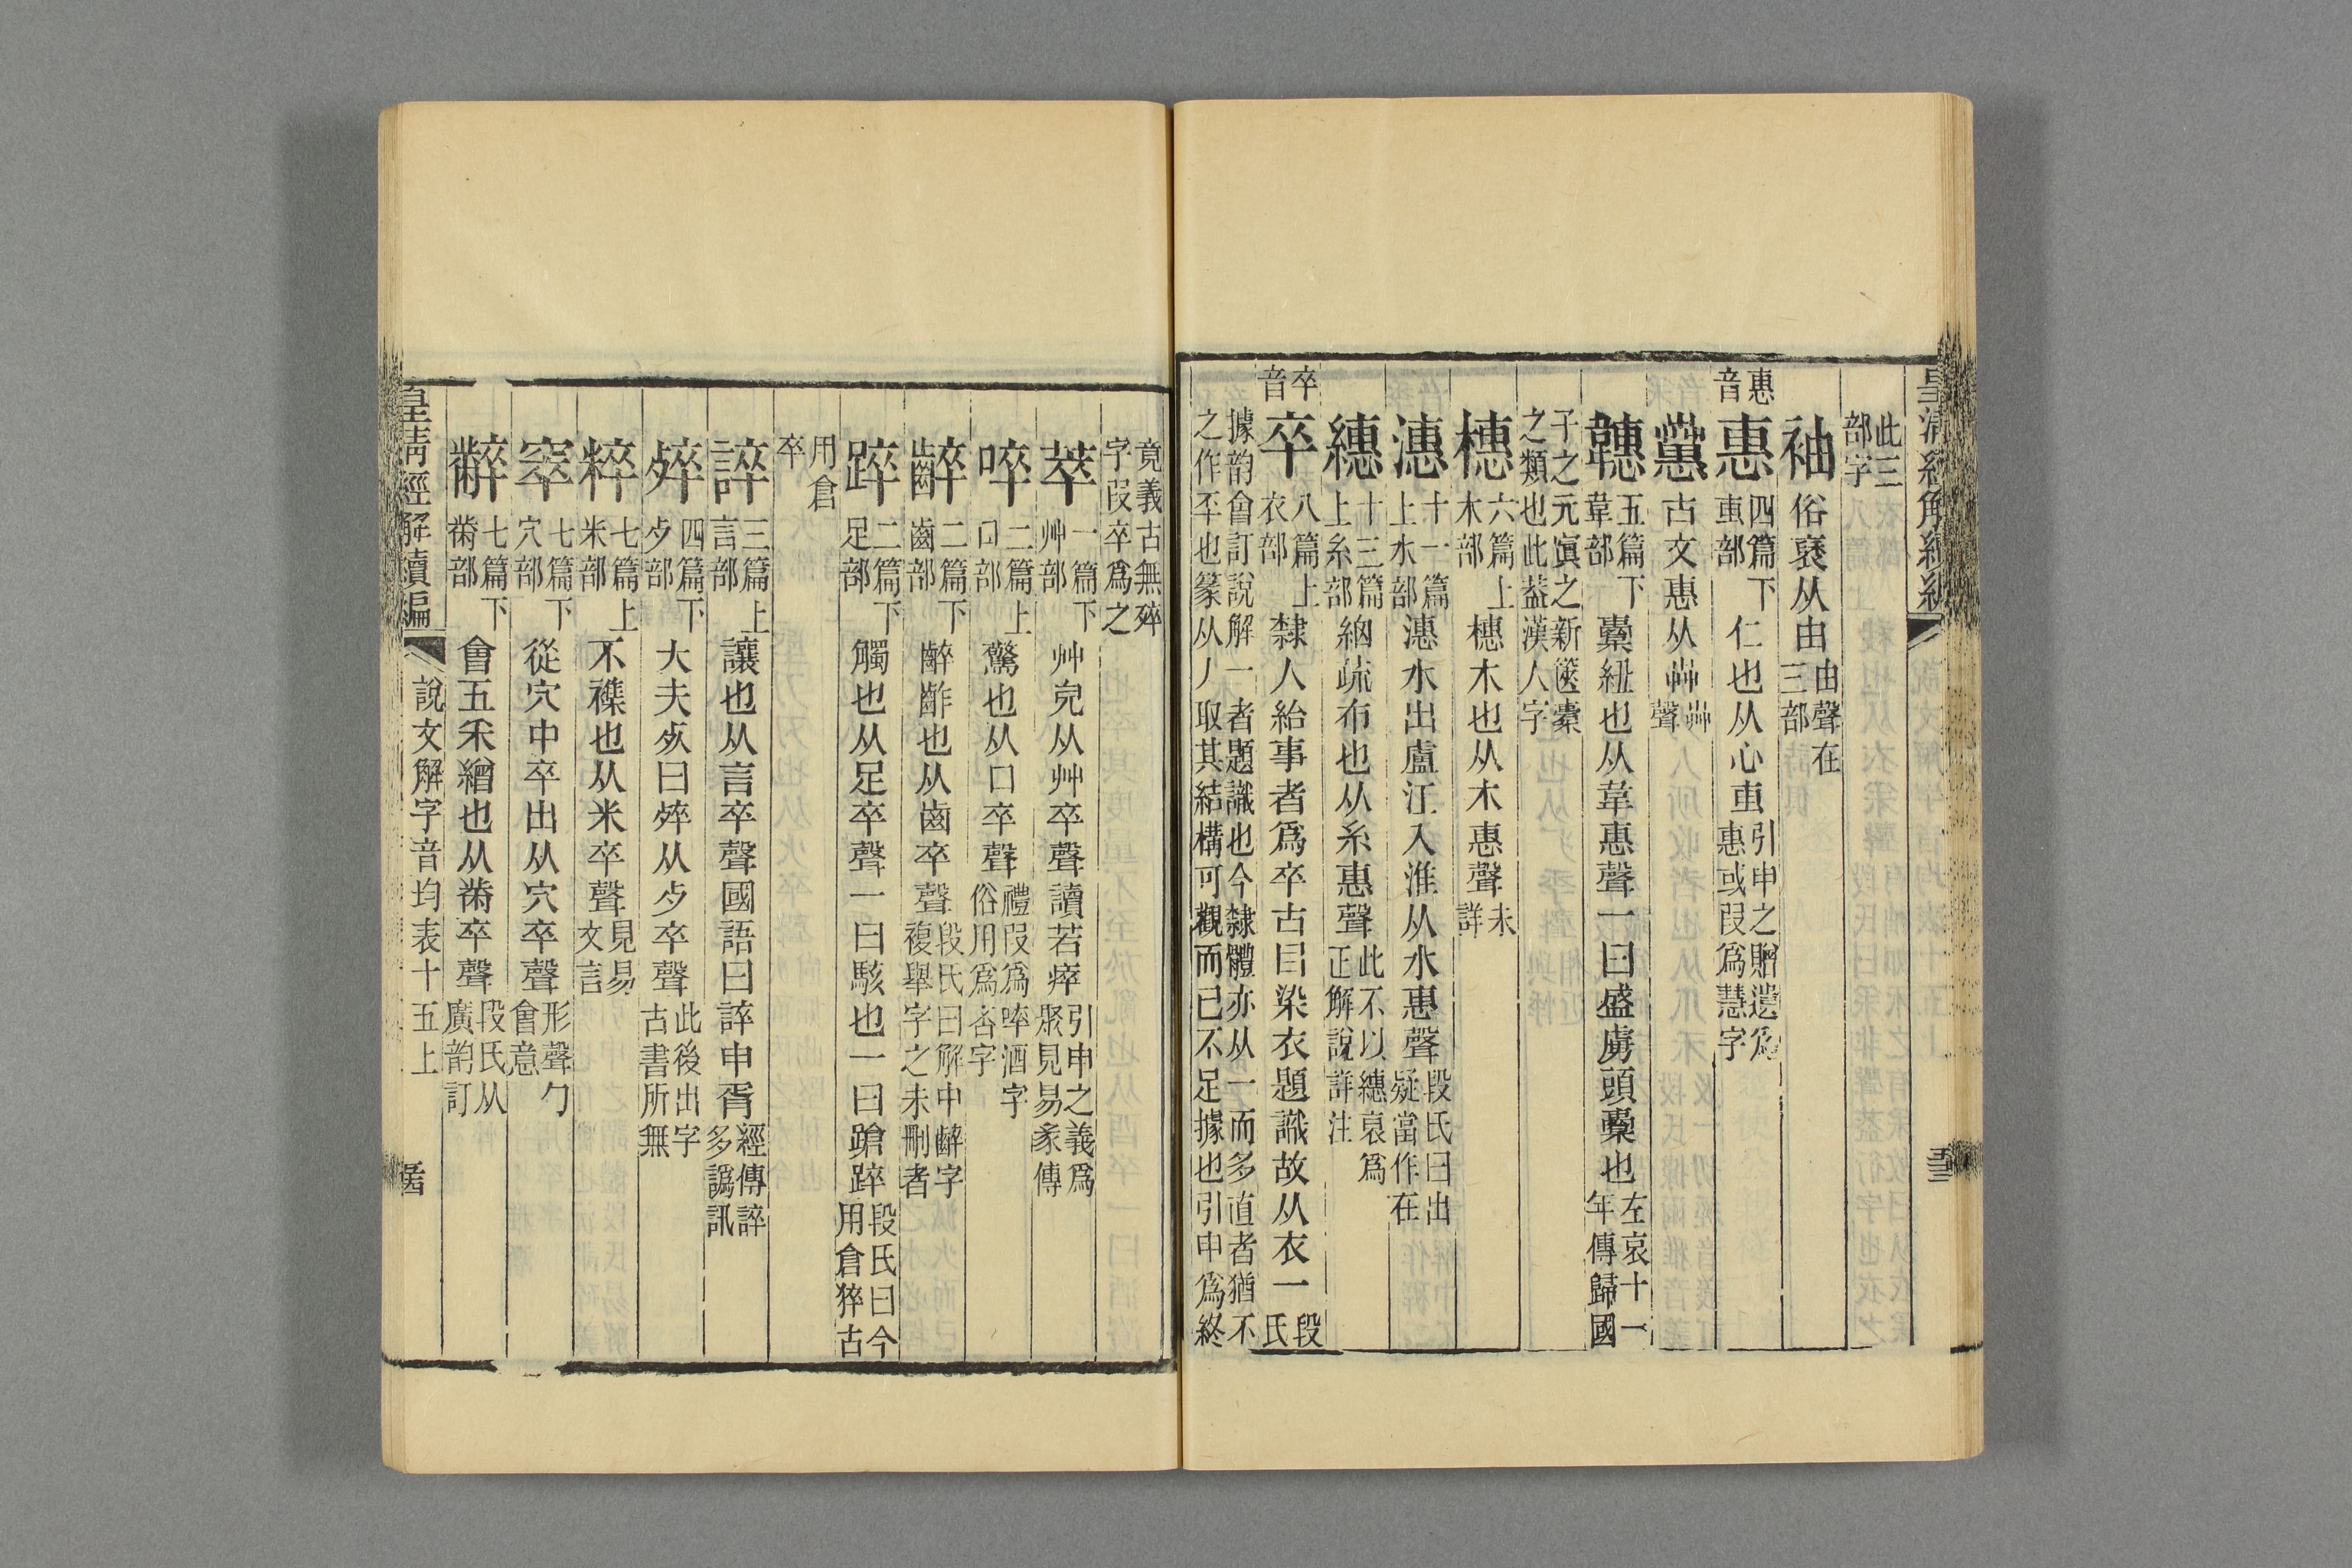 皇清經解續編
此三
部字
袖俗褎从由由聲在
三部
惠音
惠四篇下
叀部仁也从心叀引申之贈遺爲
惠或叚爲慧字
古文惠从芔芔
聲
韢五篇下
韋部橐紐也从韋惠聲一曰盛虜頭橐也左哀十一
年傳歸國
子之元寘之新篋橐
之類也此葢漢人字
橞六篇上
木部橞木也从木惠聲未
詳
潓十一篇
上水部潓水出盧江入淮从水惠聲段氏曰出
疑當作在
繐十三篇
上糸部細疏布也从糸惠聲此不以繐衰爲
正解說詳注
卒音
卒八篇上
衣部隸人給事者爲卒古㠯染衣題識故从衣一段
氏
據韵會訂說解一者題識也今隸體亦从一而多直者猶不
之作丕也篆从丿取其結構可觀而已不足據也引申爲終
竟義古無殚
字叚卒爲之
萃一篇下
艸部艸皃从艸卒聲讀若瘁引申之義爲
聚見易彖傳
啐二篇上
口部驚也从口卒聲禮叚爲啐酒字
俗用爲咅字
䶓二篇下
齒部齰也从齒卒聲段氏曰解中字
複舉字之未刪者
踤二篇下
足部觸也从足卒聲一曰駭也一曰蹌踤段氏曰今
用倉猝古
用倉
卒
誶三篇上
言部讓也从言卒聲國語曰誶申胥經傳誶
多譌訊
䘹四篇下
歺部大夫死曰從歺卒聲此後出字
古書所無
粹七篇上
米部不襍也从米卒聲見易
文言
窣七篇下
穴部從穴中卒出从穴卒聲形聲勹
會意
黺七篇下
黹部會五采繒也从黹卒聲段氏从
廣韵訂
皇清經解續編
說文解字音均表十五上